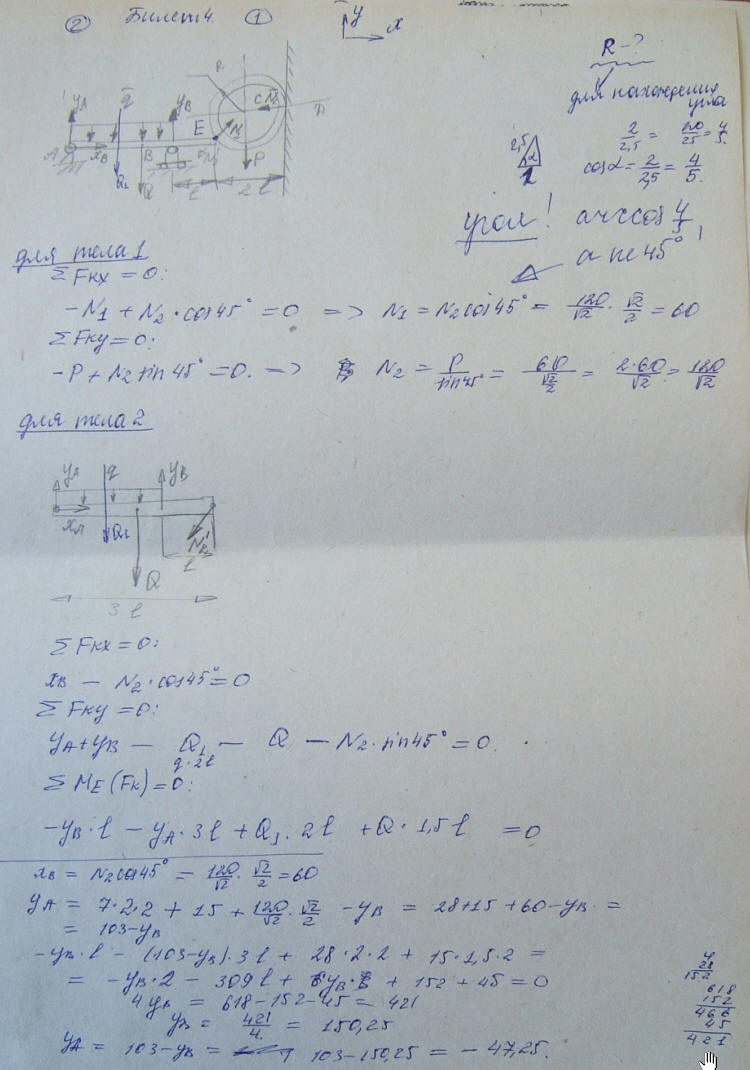 ② Билет 4. ①
y x
R-?
для нахождения угла
2/2,5 = 20/25 = 4/5.
2,5 α 2
cosα = 2/2,5 = 4/5.
угол! arccos 4/5
а не 45° !
yA q yB E R C N1 N2
A xB Q1 B Q P l 2l
для тела 1
ΣFkx = 0:
-N1 + N2·cos45° = 0 => N1 = N2cos45° = 120/√2 · √2/2 = 60
ΣFky = 0:
-P + N2 sin45° = 0. => N2 = P/sin45° = 60/(√2/2) = 2·60/√2 = 120/√2
для тела 2
yA q yB
xA Q1 N2'
Q l
3l
ΣFkx = 0:
xB - N2·cos45° = 0
ΣFky = 0:
yA + yB - Q1 - Q - N2·sin45° = 0.
q·2l
ΣME(Fk) = 0:
-yB·l - yA·3l + Q1·2l + Q·1,5l = 0
xB = N2cos45° = 120/√2 · √2/2 = 60
yA = 7·2·2 + 15 + 120/√2 · √2/2 - yB = 28+15+60-yB =
= 103-yB
-yB·l - (103-yB)·3l + 28·2·2 + 15·1,5·2 =
= -yB·2 - 309l + 6yB + 152 + 45 = 0
4yB = 618-152-45 = 421
yB = 421/4 = 150,25
yA = 103-yB = 103-150,25 = -47,25.
4
28
152
618
152
466
45
421